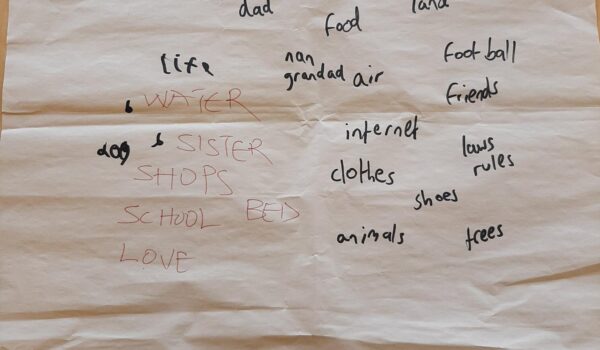 dad
land
food
life
nan
grandad
air
football
WATER
friends
dog
SISTER
internet
laws
rules
SHOPS
clothes
shoes
SCHOOL
BED
animals
trees
LOVE